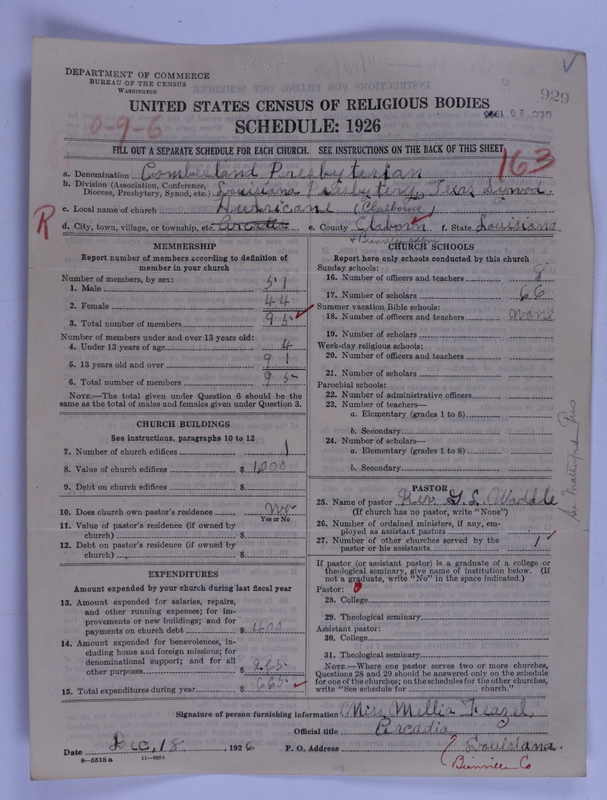 DEPARTMENT OF COMMERCE
BUREAU OF THE CENSUS
WASHINGTON
929
DEC 20 1926
UNITED STATES CENSUS OF RELIGIOUS BODIES
0-9-6
SCHEDULE: 1926
FILL OUT A SEPARATE SCHEDULE FOR EACH CHURCH. SEE INSTRUCTIONS ON THE BACK OF THIS SHEET
163
a. Denomination Comberland Presbyterian
b. Division (Association, Conference, Diocese, Presbytery, Synod, etc.) Louisiana Presbytery, Texas Synod.
c. Local name of church Hurricane (Claiborne)
R
d. City, town, village, or township, etc. Arcadia e. County Claborn f. State Louisiana
MEMBERSHIP
Report number of members according to definition of
member in your church
Number of members, by sex:
1. Male 51
2. Female 44
3. Total number of members 95
Number of members under and over 13 years old:
4. Under 13 years of age 4
5. 13 years old and over 91
6. Total number of members 95
NOTE.—The total given under Question 6 should be
same as the total of males and females given under Question 3.
CHURCH BUILDINGS
See instructions, paragraphs 10 to 12
7. Number of church edifices 1
8. Value of church edifices $ 1,000
9. Debt on church edifices $
10. Does church own pastor's residence? No
Yes or No
11. Value of pastor's residence (if owned by
church) $
12. Debt on pastor's residence (if owned by
church) $
EXPENDITURES
Amount expended by your church during last fiscal year
13. Amount expended for salaries, repairs,
and other running expenses; for im-
provements or new buildings; and for
payments on church debt $ 400
14. Amount expended for benevolences, in-
cluding home and foreign missions; for
denominational support; and for all
other purposes $ 265
15. Total expenditures during year $ 665
CHURCH SCHOOLS
Report here only schools conducted by this church
Sunday schools:
16. Number of officers and teachers 8
17. Number of scholars 66
Summer vacation Bible schools:
18. Number of officers and teachers none
19. Number of scholars
Week-day religious schools:
20. Number of officers and teachers
21. Number of scholars
Parochial schools:
22. Number of administrative officers
23. Number of teachers—
a. Elementary (grades 1 to 8)
b. Secondary
24. Number of scholars—
a. Elementary (grades 1 to 8)
b. Secondary
PASTOR
25. Name of pastor Rev. G. L. Waddle
(If church has no pastor, write "None")
26. Number of ordained ministers, if any, em-
ployed as assistant pastors
27. Number of other churches served by the
pastor or his assistants 1
If pastor (or assistant pastor) is a graduate of a college or
theological seminary, give name of institution below. (If
not a graduate, write "No" in the space indicated.)
Pastor:
28. College
29. Theological seminary
Assistant pastor:
30. College
31. Theological seminary
NOTE.—Where one pastor serves two or more churches,
Questions 28 and 29 should be answered only on the schedule
for one of the churches; on the schedules for the other churches,
write "See schedule for church."
Signature of person furnishing information Miss Mellie Feazel
Official title Arcadia
Date Dec, 18, 1926 P. O. Address Louisiana.
Bienville Co
8—5518 a